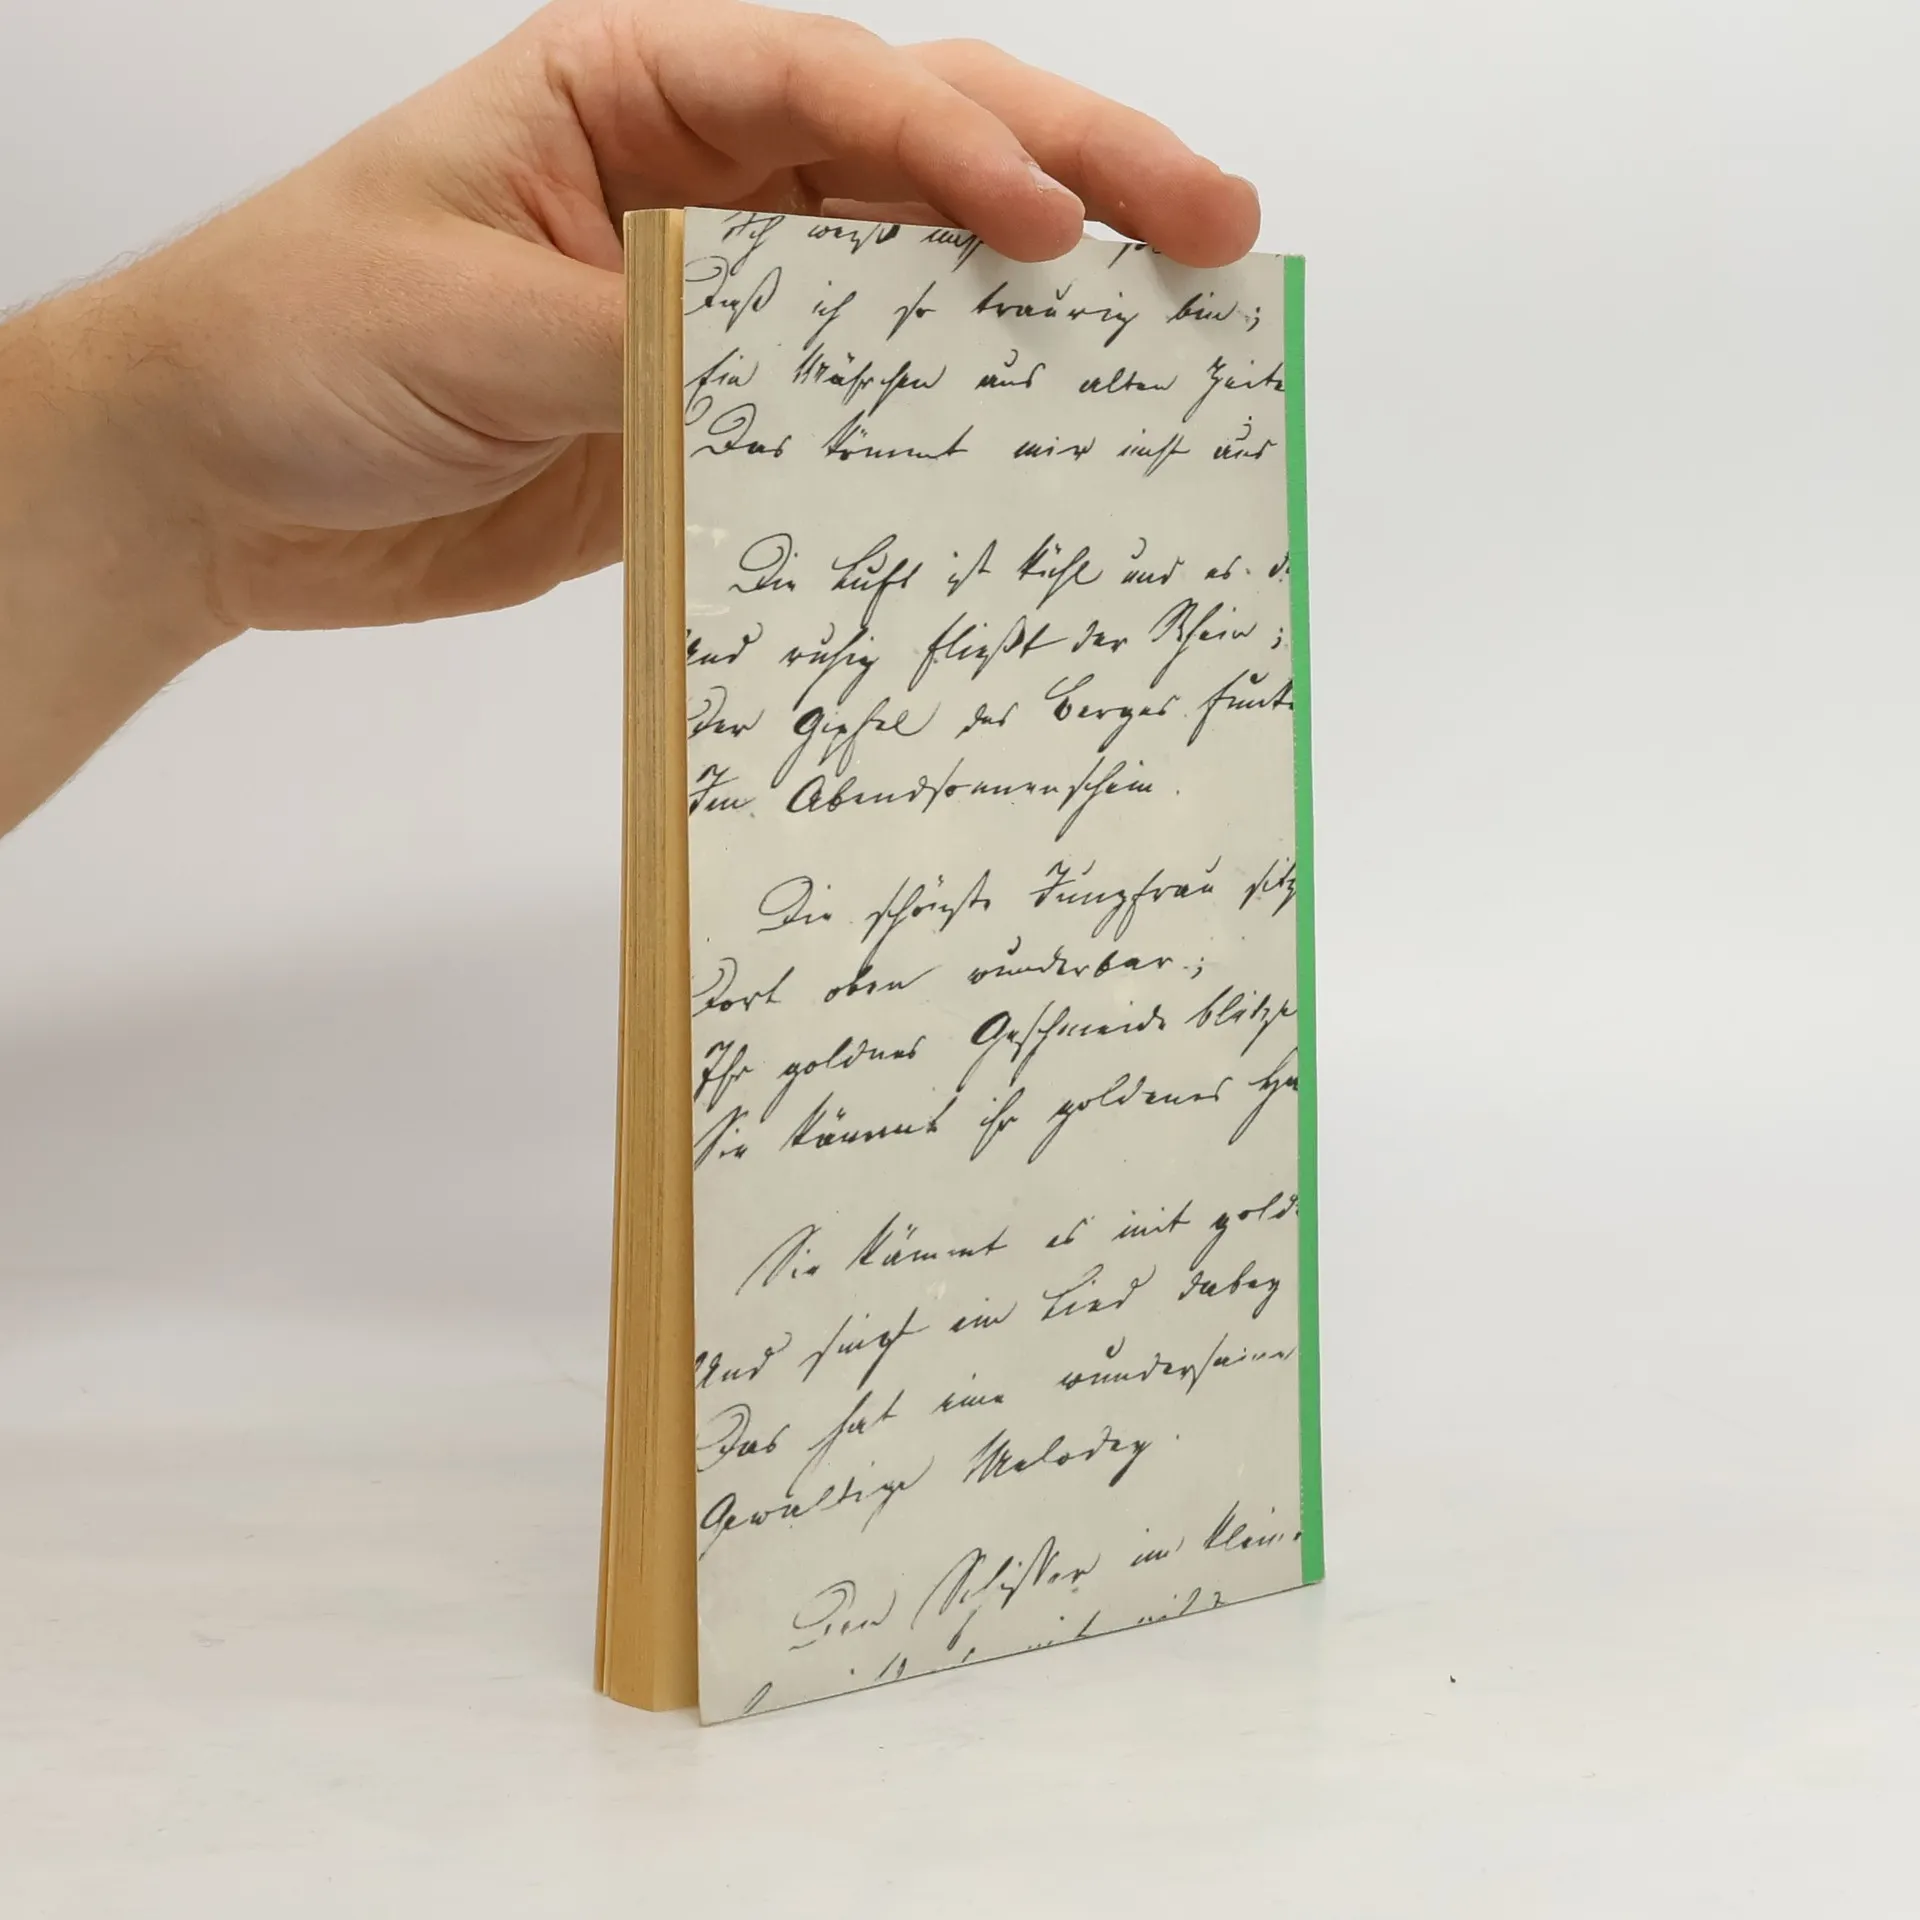 Ich weiß nicht
Daß ich so traurig bin;
Ein Mährchen aus alten Zeite
Das kömmt mir nicht aus
Die Luft ist kühl und es d
Und ruhig fließt der Rhein;
Der Gipfel des Berges funke
Im Abendsonnenschein.
Die schönste Jungfrau sitz
Dort oben wunderbar;
Ihr goldnes Geschmeide blitze
Sie kämmt ihr goldenes Ha
Sie kämmt es mit gold
Und singt ein Lied dabey
Das hat eine wundersame
Gewaltige Melodey.
Den Schiffer im klein